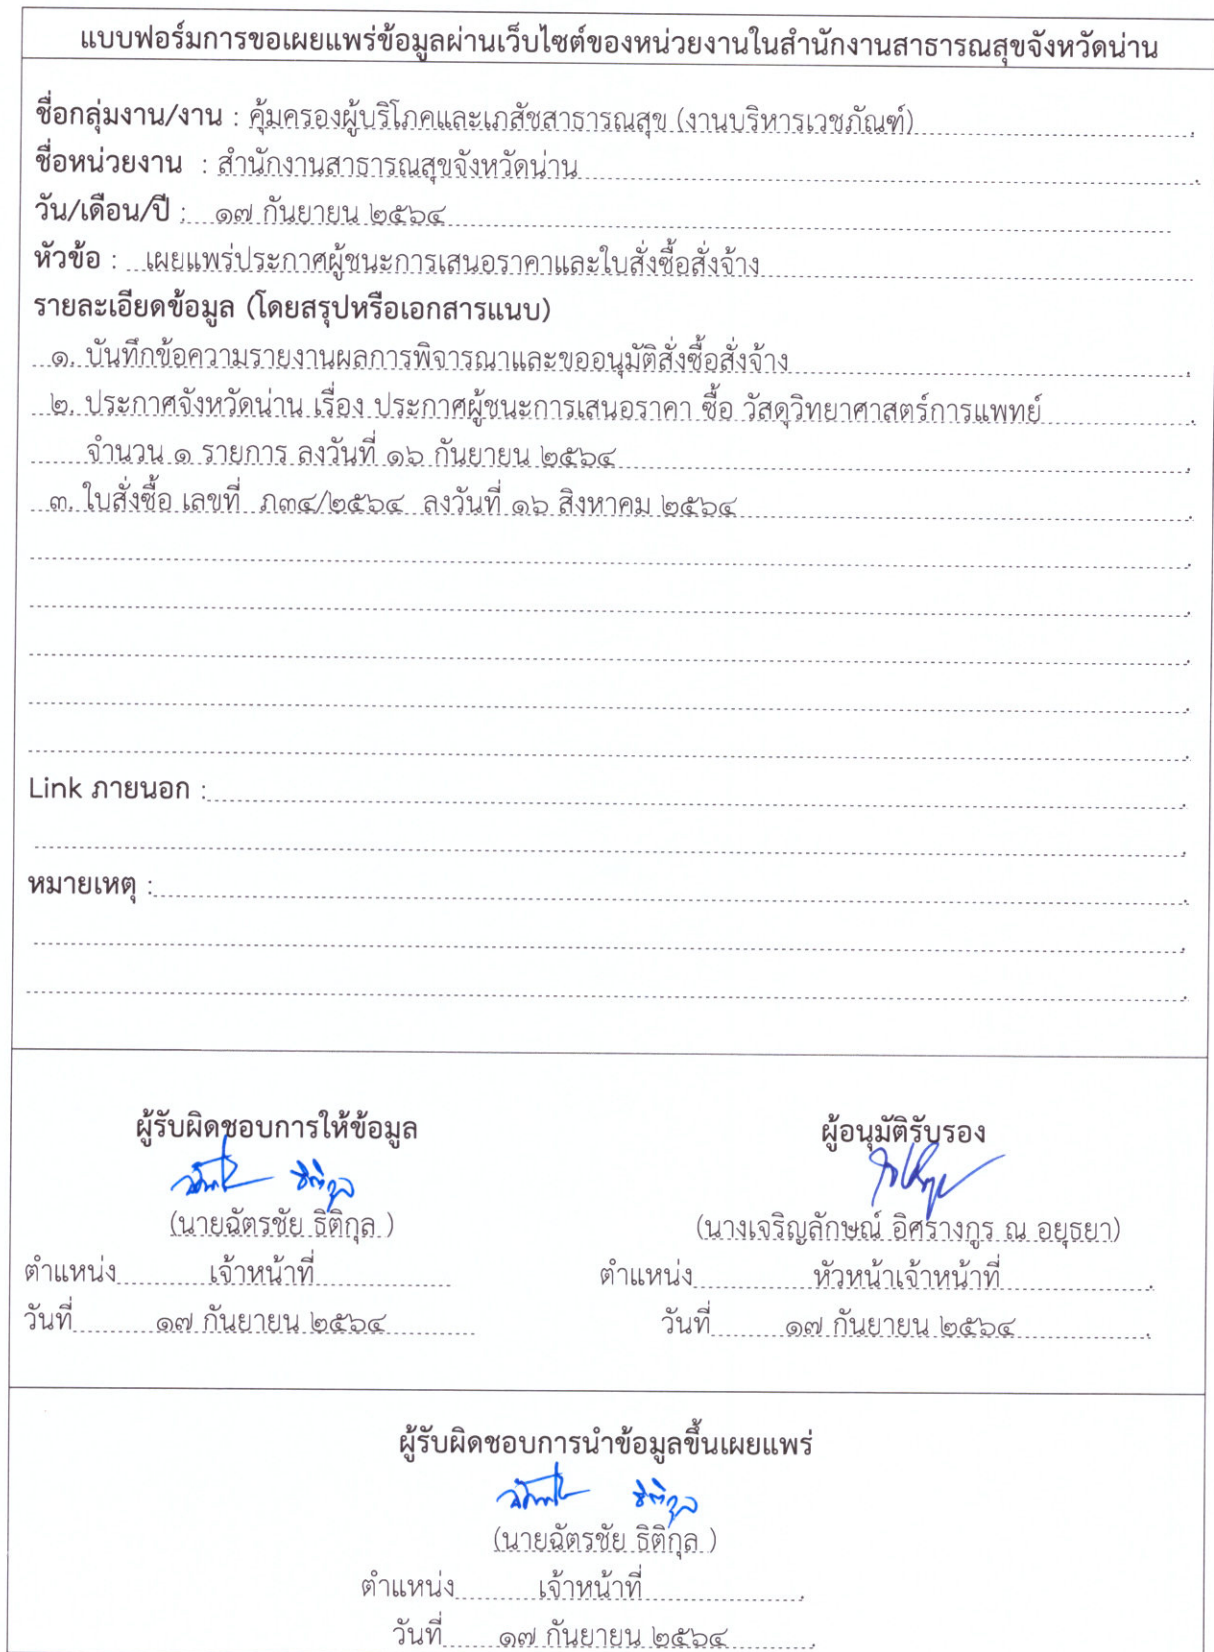 แบบฟอร์มการขอเผยแพร่ข้อมูลผ่านเว็บไซต์ของหน่วยงานในสำนักงานสาธารณสุขจังหวัดน่าน
ชื่อกลุ่มงาน/งาน : คุ้มครองผู้บริโภคและเภสัชสาธารณสุข (งานบริหารเวชภัณฑ์)
ชื่อหน่วยงาน : สำนักงานสาธารณสุขจังหวัดน่าน
วัน/เดือน/ปี : ๑๗ กันยายน ๒๕๖๔
หัวข้อ : เผยแพร่ประกาศผู้ชนะการเสนอราคาและใบสั่งซื้อสั่งจ้าง
รายละเอียดข้อมูล (โดยสรุปหรือเอกสารแนบ)
๑. บันทึกข้อความรายงานผลการพิจารณาและขออนุมัติสั่งซื้อสั่งจ้าง
๒. ประกาศจังหวัดน่าน เรื่อง ประกาศผู้ชนะการเสนอราคา ซื้อ วัสดุวิทยาศาสตร์การแพทย์
จำนวน ๑ รายการ ลงวันที่ ๑๖ กันยายน ๒๕๖๔
๓. ใบสั่งซื้อ เลขที่ ภ๓๔/๒๕๖๔ ลงวันที่ ๑๖ สิงหาคม ๒๕๖๔
Link ภายนอก :
หมายเหตุ :
ผู้รับผิดชอบการให้ข้อมูล ผู้อนุมัติรับรอง
ฉัตรชัย ธิติกุล
(นายฉัตรชัย ธิติกุล ) (นางเจริญลักษณ์ อิศรางกูร ณ อยุธยา)
ตำแหน่ง เจ้าหน้าที่ ตำแหน่ง หัวหน้าเจ้าหน้าที่
วันที่ ๑๗ กันยายน ๒๕๖๔ วันที่ ๑๗ กันยายน ๒๕๖๔
ผู้รับผิดชอบการนำข้อมูลขึ้นเผยแพร่
ฉัตรชัย ธิติกุล
(นายฉัตรชัย ธิติกุล )
ตำแหน่ง เจ้าหน้าที่
วันที่ ๑๗ กันยายน ๒๕๖๔